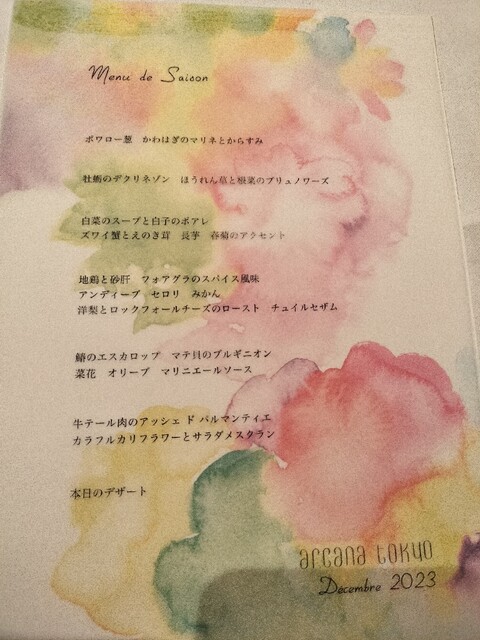 Menu de Saison
ポワロー葱　かわはぎのマリネとからすみ
牡蛎のデクリネゾン　ほうれん草と根菜のブリュノワーズ
白菜のスープと白子のポアレ
ズワイ蟹とえのき茸　長芋　春菊のアクセント
地鶏と砂肝　フォアグラのスパイス風味
アンディーブ　セロリ　みかん
洋梨とロックフォールチーズのロースト　チュイルセザム
鰆のエスカロップ　マテ貝のブルギニオン
菜花　オリーブ　マリニエールソース
牛テール肉のアッシェ ド パルマンティエ
カラフルカリフラワーとサラダメスクラン
本日のデザート
arcana tokyo
Décembre 2023